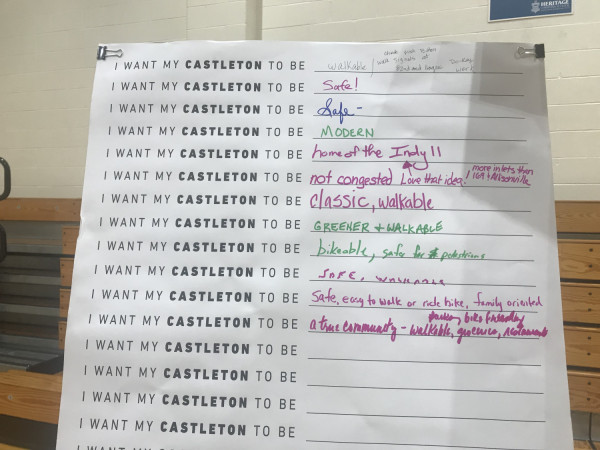 HERITAGE
I WANT MY CASTLETON TO BE walkable / push button walk signals at 82nd and
I WANT MY CASTLETON TO BE Safe!
I WANT MY CASTLETON TO BE Safe -
I WANT MY CASTLETON TO BE MODERN
I WANT MY CASTLETON TO BE home of the Indy 11
I WANT MY CASTLETON TO BE not congested Love that idea! / more inlets than 169 + Allisonville
I WANT MY CASTLETON TO BE classic, walkable
I WANT MY CASTLETON TO BE GREENER + WALKABLE
I WANT MY CASTLETON TO BE bikeable, safer for pedestrians
I WANT MY CASTLETON TO BE SAFE, WALKABLE
I WANT MY CASTLETON TO BE Safe, easy to walk or ride bike, family oriented
I WANT MY CASTLETON TO BE a true community - walkable, bike friendly, groceries, restaurants
I WANT MY CASTLETON TO BE
I WANT MY CASTLETON TO BE
I WANT MY CASTLETON TO BE
I WANT MY CASTLETON TO BE
I WANT MY CASTLETON TO BE